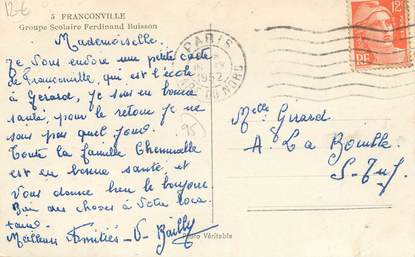 12€
5 FRANCONVILLE
Groupe Scolaire Ferdinand Buisson
Mademoiselle
Je vous envoie une petite carte
de Franconville, qui est l'école
à Gérard, je suis en bonne
santé, pour le retour je ne
sais pas quel jour.
Toute la famille
est en bonne santé et
vous donne bien le bonjour
Bien des choses à votre
Meilleures Amitiés - V. Bailly
95
PARIS
1952
GARE DU NORD
12F
RF
Melle Girard
A La Bouille
S-Inf.
Photo Véritable